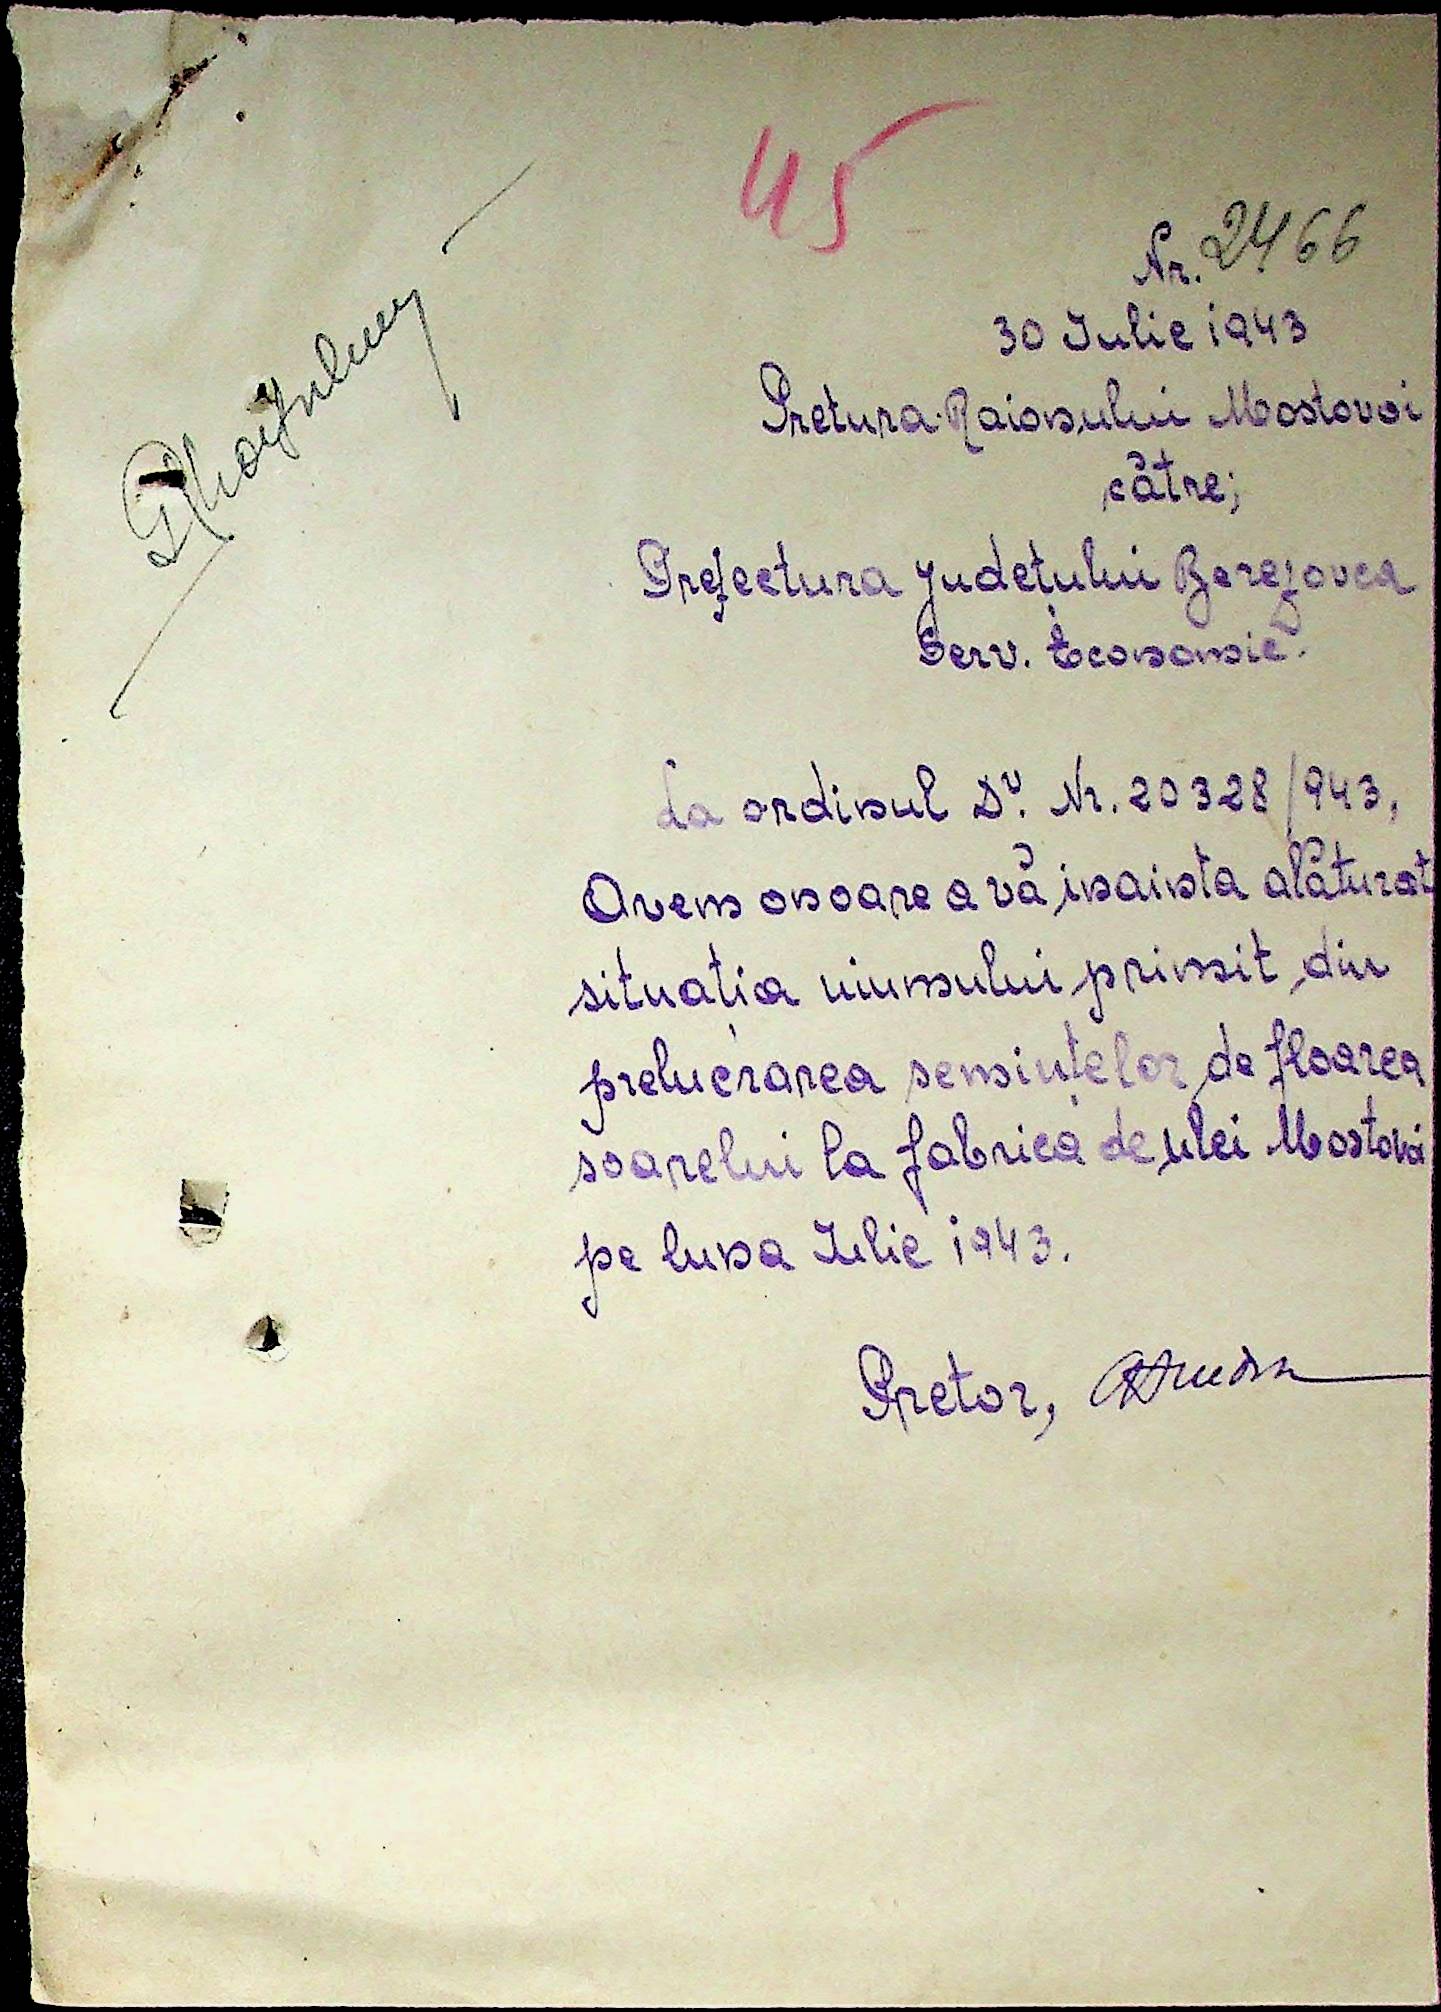 45
Nr. 2466
30 Iulie 1943
Pretura Raionului Mostovoi
către;
Prefectura Județului Berezovca
Serv. Economic.
La ordinul Dv. Nr. 20328/943,
Avem onoare a vă înainta alăturat
situația uiumului primit din
prelucrarea semințelor de floarea
soarelui la fabrica de ulei Mostovoi
pe luna Iulie 1943.
Pretor,